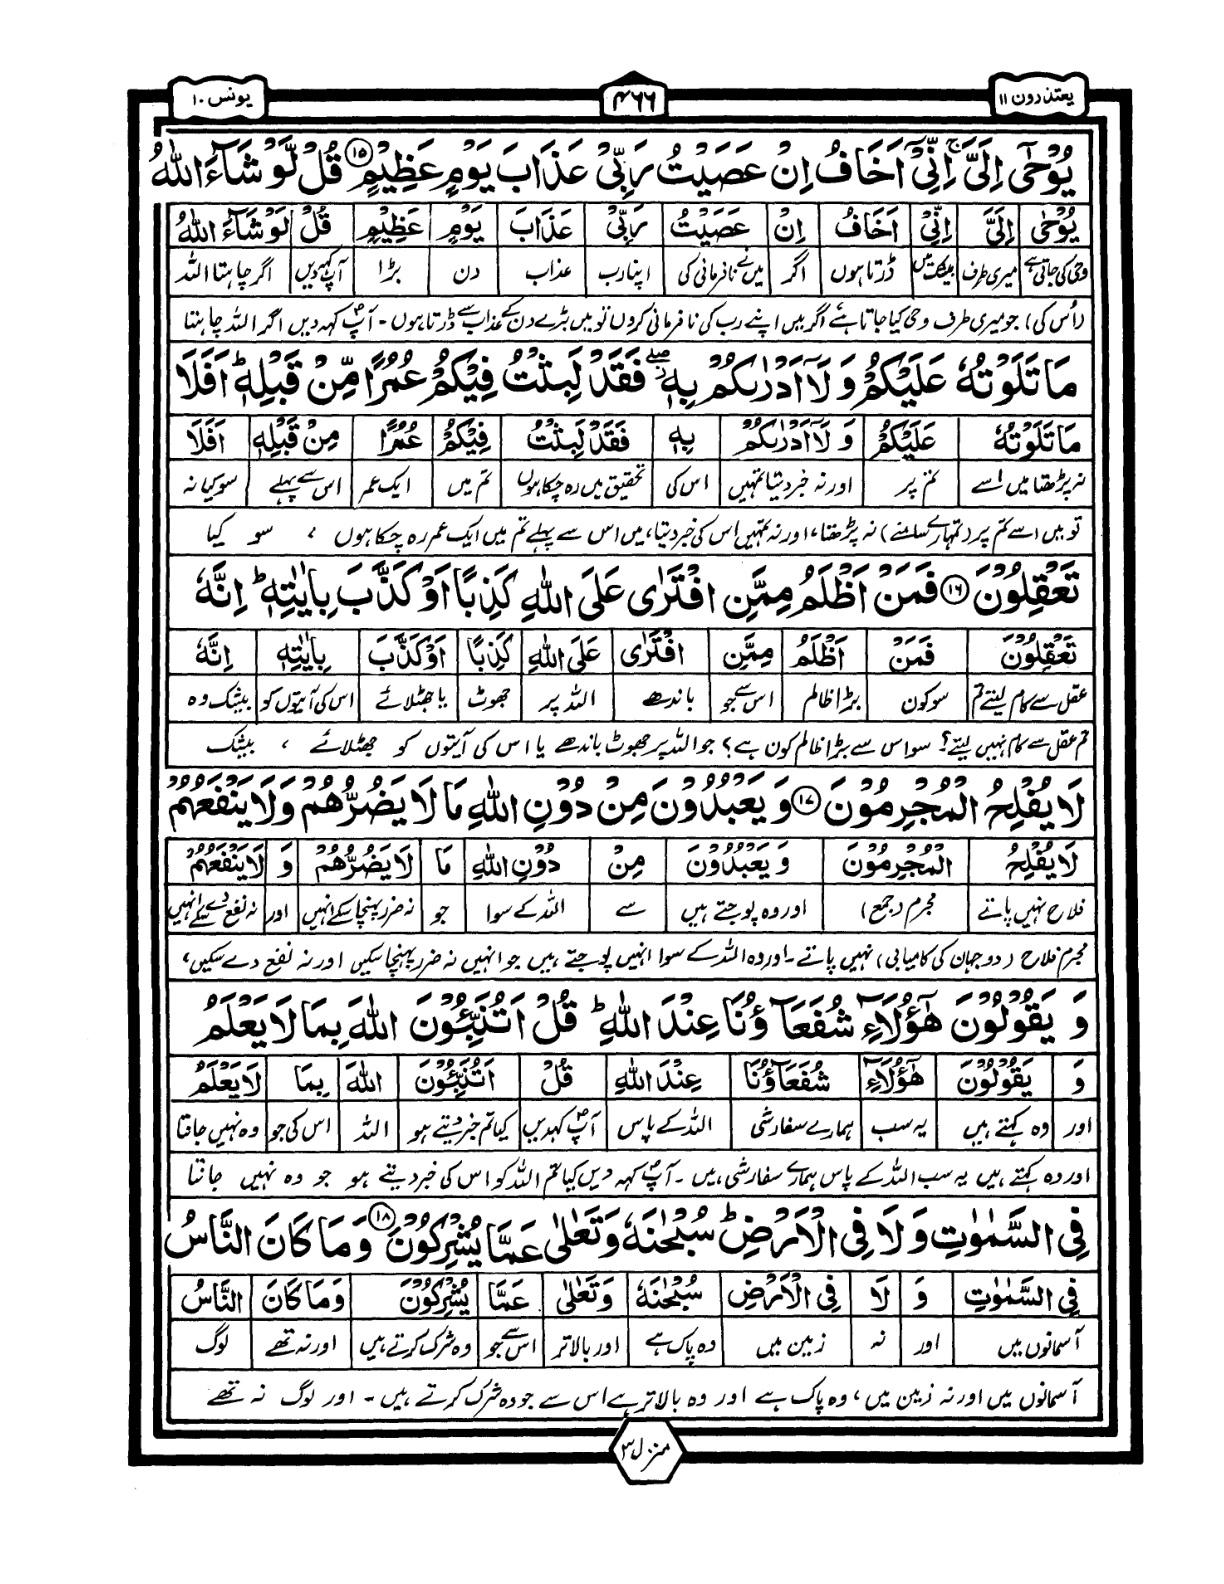 یعتذرون ۱۱
۴۶۶
یونس ۱۰
یُوْحٰۤی اِلَیَّ ۚ اِنِّیْۤ اَخَافُ اِنْ عَصَیْتُ رَبِّیْ عَذَابَ یَوْمٍ عَظِیْمٍ ۝۱۵ قُلْ لَّوْ شَآءَ اللّٰهُ
یُوْحٰۤی اِلَیَّ اِنِّیْۤ اَخَافُ اِنْ عَصَیْتُ رَبِّیْ عَذَابَ یَوْمٍ عَظِیْمٍ قُلْ لَوْ شَآءَ اللّٰهُ
وحی کی جاتی ہے میری طرف بیشک میں ڈرتا ہوں اگر میں نے نافرمانی کی اپنا رب عذاب دن بڑا آپ کہہ دیں اگر چاہتا اللہ
(اُس کی) جو میری طرف وحی کیا جاتا ہے اگر میں اپنے رب کی نافرمانی کروں تو میں بڑے دن کے عذاب سے ڈرتا ہوں - آپؐ کہہ دیں اگر اللہ چاہتا
مَا تَلَوْتُهٗ عَلَیْكُمْ وَ لَاۤ اَدْرٰىكُمْ بِهٖ ۖ فَقَدْ لَبِثْتُ فِیْكُمْ عُمُرًا مِّنْ قَبْلِهٖ ؕ اَفَلَا
مَا تَلَوْتُهٗ عَلَیْكُمْ وَ لَاۤ اَدْرٰىكُمْ بِهٖ فَقَدْ لَبِثْتُ فِیْكُمْ عُمُرًا مِنْ قَبْلِهٖ اَفَلَا
نہ پڑھتا میں اسے تم پر اور نہ خبر دیتا تمہیں اس کی تحقیق میں رہ چکا ہوں تم میں ایک عمر اس سے پہلے سو کیا نہ
تو میں اسے تم پر (تمہارے سامنے) نہ پڑھتا، اور نہ تمہیں اس کی خبر دیتا، میں اس سے پہلے تم میں ایک عمر رہ چکا ہوں ، سو کیا
تَعْقِلُوْنَ ۝۱۶ فَمَنْ اَظْلَمُ مِمَّنِ افْتَرٰی عَلَی اللّٰهِ كَذِبًا اَوْ كَذَّبَ بِاٰیٰتِهٖ ؕ اِنَّهٗ
تَعْقِلُوْنَ فَمَنْ اَظْلَمُ مِمَّنِ افْتَرٰی عَلَی اللّٰهِ كَذِبًا اَوْ كَذَّبَ بِاٰیٰتِهٖ اِنَّهٗ
عقل سے کام لیتے تم سو کون بڑا ظالم اس سے جو باندھے اللہ پر جھوٹ یا جھٹلائے اس کی آیتوں کو بیشک وہ
تم عقل سے کام نہیں لیتے؟ سو اس سے بڑا ظالم کون ہے؟ جو اللہ پر جھوٹ باندھے یا اس کی آیتوں کو جھٹلائے ، بیشک
لَا یُفْلِحُ الْمُجْرِمُوْنَ ۝۱۷ وَ یَعْبُدُوْنَ مِنْ دُوْنِ اللّٰهِ مَا لَا یَضُرُّهُمْ وَلَا یَنْفَعُهُمْ
لَا یُفْلِحُ الْمُجْرِمُوْنَ وَ یَعْبُدُوْنَ مِنْ دُوْنِ اللّٰهِ مَا لَا یَضُرُّهُمْ وَ لَا یَنْفَعُهُمْ
فلاح نہیں پاتے مجرم (جمع) اور وہ پوجتے ہیں سے اللہ کے سوا جو نہ ضرر پہنچا سکے انہیں اور نہ نفع دے سکے انہیں
مجرم فلاح (دو جہان کی کامیابی) نہیں پاتے - اور وہ اللہ کے سوا انہیں پوجتے ہیں جو انہیں نہ ضرر پہنچا سکیں اور نہ نفع دے سکیں،
وَ یَقُوْلُوْنَ هٰۤؤُلَآءِ شُفَعَآؤُنَا عِنْدَ اللّٰهِ ؕ قُلْ اَتُنَبِّـُٔوْنَ اللّٰهَ بِمَا لَا یَعْلَمُ
وَ یَقُوْلُوْنَ هٰۤؤُلَآءِ شُفَعَآؤُنَا عِنْدَ اللّٰهِ قُلْ اَتُنَبِّـُٔوْنَ اللّٰهَ بِمَا لَا یَعْلَمُ
اور وہ کہتے ہیں یہ سب ہمارے سفارشی اللہ کے پاس آپؐ کہہ دیں کیا تم خبر دیتے ہو اللہ اس کی جو وہ نہیں جانتا
اور وہ کہتے ہیں یہ سب اللہ کے پاس ہمارے سفارشی ہیں - آپؐ کہہ دیں کیا تم اللہ کو اس کی خبر دیتے ہو جو وہ نہیں جانتا
فِی السَّمٰوٰتِ وَ لَا فِی الْاَرْضِ ؕ سُبْحٰنَهٗ وَ تَعٰلٰی عَمَّا یُشْرِكُوْنَ ۝۱۸ وَ مَا كَانَ النَّاسُ
فِی السَّمٰوٰتِ وَ لَا فِی الْاَرْضِ سُبْحٰنَهٗ وَ تَعٰلٰی عَمَّا یُشْرِكُوْنَ وَ مَا كَانَ النَّاسُ
آسمانوں میں اور نہ زمین میں وہ پاک ہے اور بالاتر اس سے جو وہ شرک کرتے ہیں اور نہ تھے لوگ
آسمانوں میں اور نہ زمین میں، وہ پاک ہے اور وہ بالاتر ہے اس سے جو وہ شرک کرتے ہیں - اور لوگ نہ تھے
منزل ۳